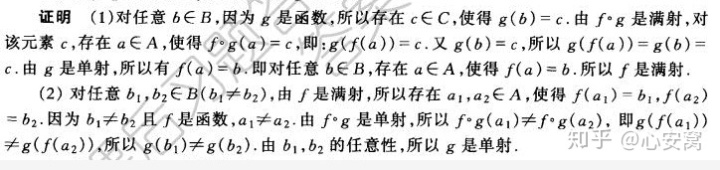 证明 (1)对任意 b∈B,因为 g 是函数,所以存在 c∈C,使得 g(b)=c.由 f∘g 是满射,对
该元素 c,存在 a∈A,使得 f∘g(a)=c,即:g(f(a))=c.又 g(b)=c,所以 g(f(a))=g(b)=
c.由 g 是单射,所以有 f(a)=b.即对任意 b∈B,存在 a∈A,使得 f(a)=b.所以 f 是满射.
(2) 对任意 b₁,b₂∈B(b₁≠b₂),由 f 是满射,所以存在 a₁,a₂∈A,使得 f(a₁)=b₁,f(a₂)
=b₂.因为 b₁≠b₂ 且 f 是函数,a₁≠a₂.由 f∘g 是单射,所以 f∘g(a₁)≠f∘g(a₂),即g(f(a₁))
≠g(f(a₂)),所以 g(b₁)≠g(b₂).由 b₁,b₂ 的任意性,所以 g 是单射.
知乎 @心安窝